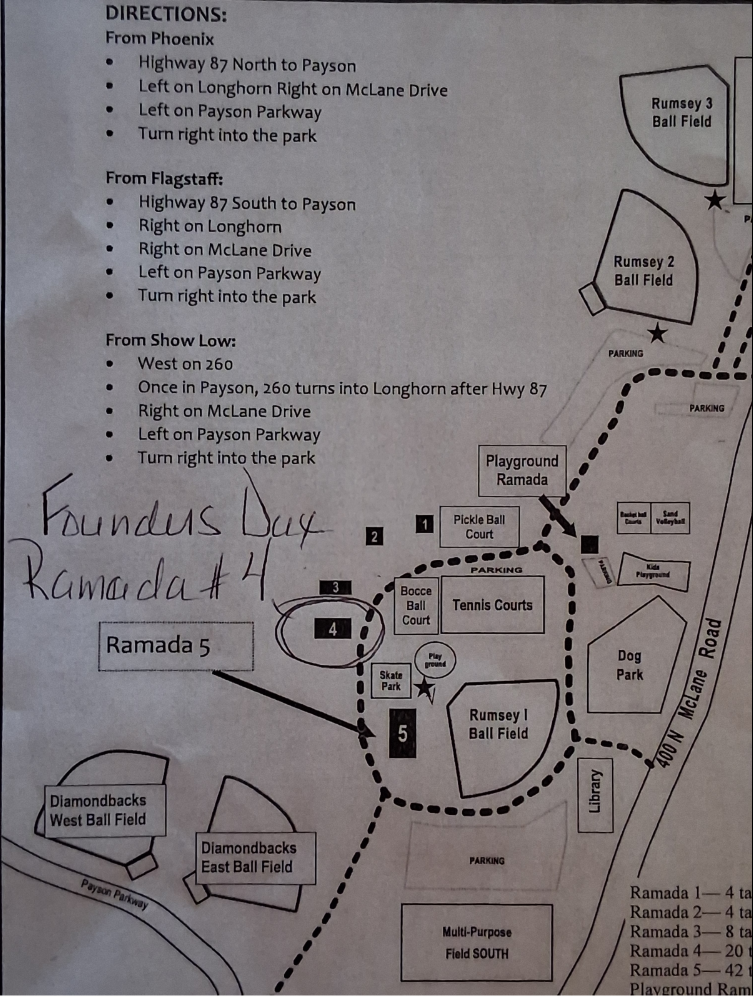 DIRECTIONS:
From Phoenix
• Highway 87 North to Payson
• Left on Longhorn Right on McLane Drive
• Left on Payson Parkway
• Turn right into the park
From Flagstaff:
• Highway 87 South to Payson
• Right on Longhorn
• Right on McLane Drive
• Left on Payson Parkway
• Turn right into the park
From Show Low:
• West on 260
• Once in Payson, 260 turns into Longhorn after Hwy 87
• Right on McLane Drive
• Left on Payson Parkway
• Turn right into the park
Founders Day
Ramada #4
Rumsey 3
Ball Field
Rumsey 2
Ball Field
PARKING
PARKING
Playground
Ramada
1
2
Pickle Ball
Court
Basket ball
Courts
Sand
Volleyball
PARKING
PARKING
Kids
Playground
3
4
Bocce
Ball
Court
Tennis Courts
Ramada 5
Skate
Park
Play
ground
Dog
Park
5
Rumsey I
Ball Field
400 N McLane Road
Library
Diamondbacks
West Ball Field
Diamondbacks
East Ball Field
Payson Parkway
PARKING
Multi-Purpose
Field SOUTH
Ramada 1— 4 ta
Ramada 2— 4 ta
Ramada 3— 8 ta
Ramada 4— 20 t
Ramada 5— 42 t
Playground Ram